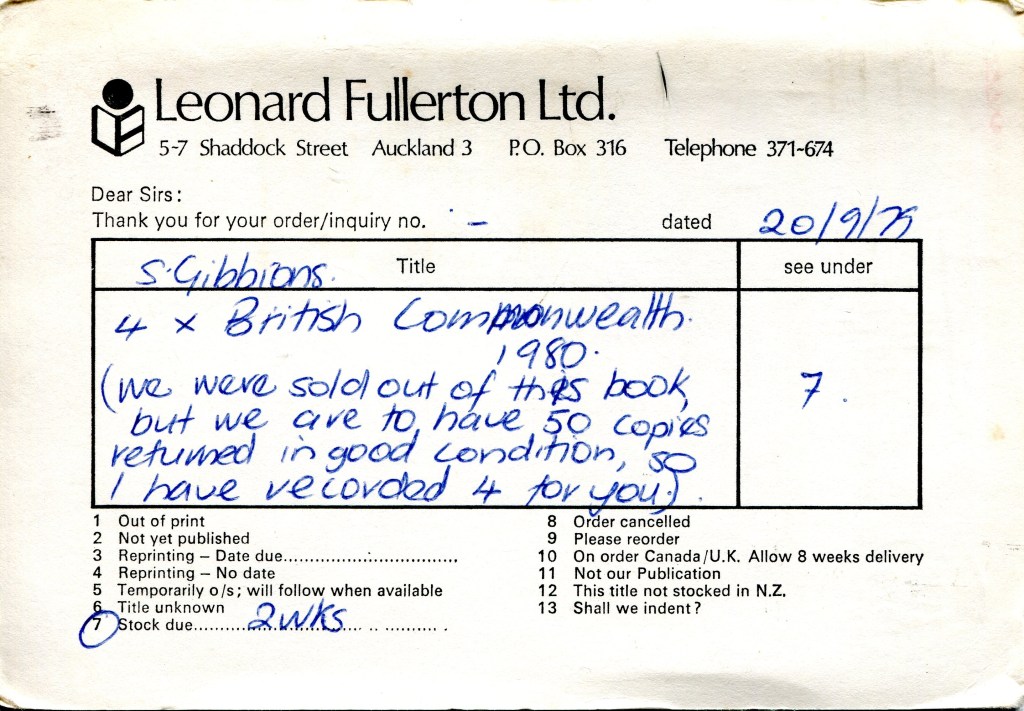 Leonard Fullerton Ltd.
5-7 Shaddock Street Auckland 3 P.O. Box 316 Telephone 371-674
Dear Sirs:
Thank you for your order/inquiry no. - dated 20/9/79
S. Gibbions. Title see under
4 x British Commonwealth.
1980.
(we were sold out of this book, 7.
but we are to have 50 copies
returned in good condition, so
I have recorded 4 for you).
1 Out of print
2 Not yet published
3 Reprinting – Date due................................
4 Reprinting – No date
5 Temporarily o/s; will follow when available
6 Title unknown
7 Stock due.......... 2wks ..........
8 Order cancelled
9 Please reorder
10 On order Canada/U.K. Allow 8 weeks delivery
11 Not our Publication
12 This title not stocked in N.Z.
13 Shall we indent?